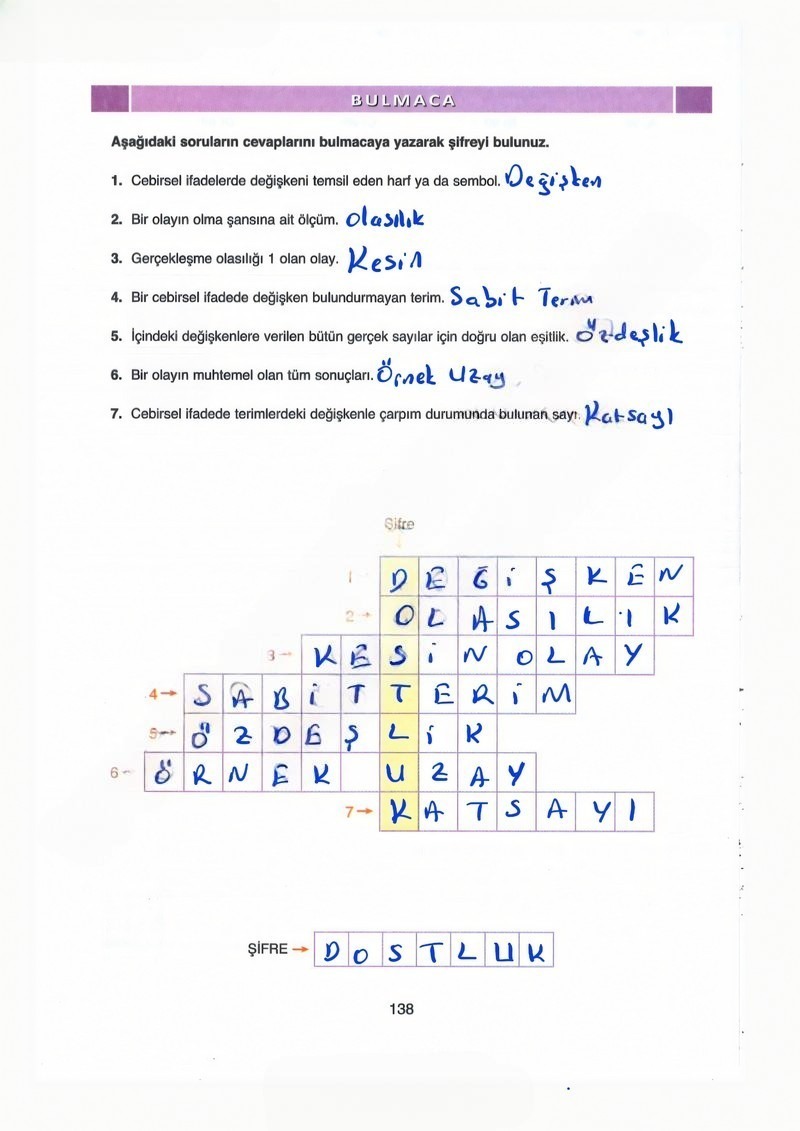 BULMACA
Aşağıdaki soruların cevaplarını bulmacaya yazarak şifreyi bulunuz.
1. Cebirsel ifadelerde değişkeni temsil eden harf ya da sembol. Değişken
2. Bir olayın olma şansına ait ölçüm. Olasılık
3. Gerçekleşme olasılığı 1 olan olay. Kesin
4. Bir cebirsel ifadede değişken bulundurmayan terim. Sabit Terim
5. İçindeki değişkenlere verilen bütün gerçek sayılar için doğru olan eşitlik. Özdeşlik
6. Bir olayın muhtemel olan tüm sonuçları. Örnek Uzay
7. Cebirsel ifadede terimlerdeki değişkenle çarpım durumunda bulunan sayı. Katsayı
Şifre
1 DEĞİŞKEN
2 → OLASILIK
3 → KESİN OLAY
4 → SABİTTERİM
5 → ÖZDEŞLİK
6 → ÖRNEK UZAY
7 → KATSAYI
ŞİFRE → DOSTLUK
138